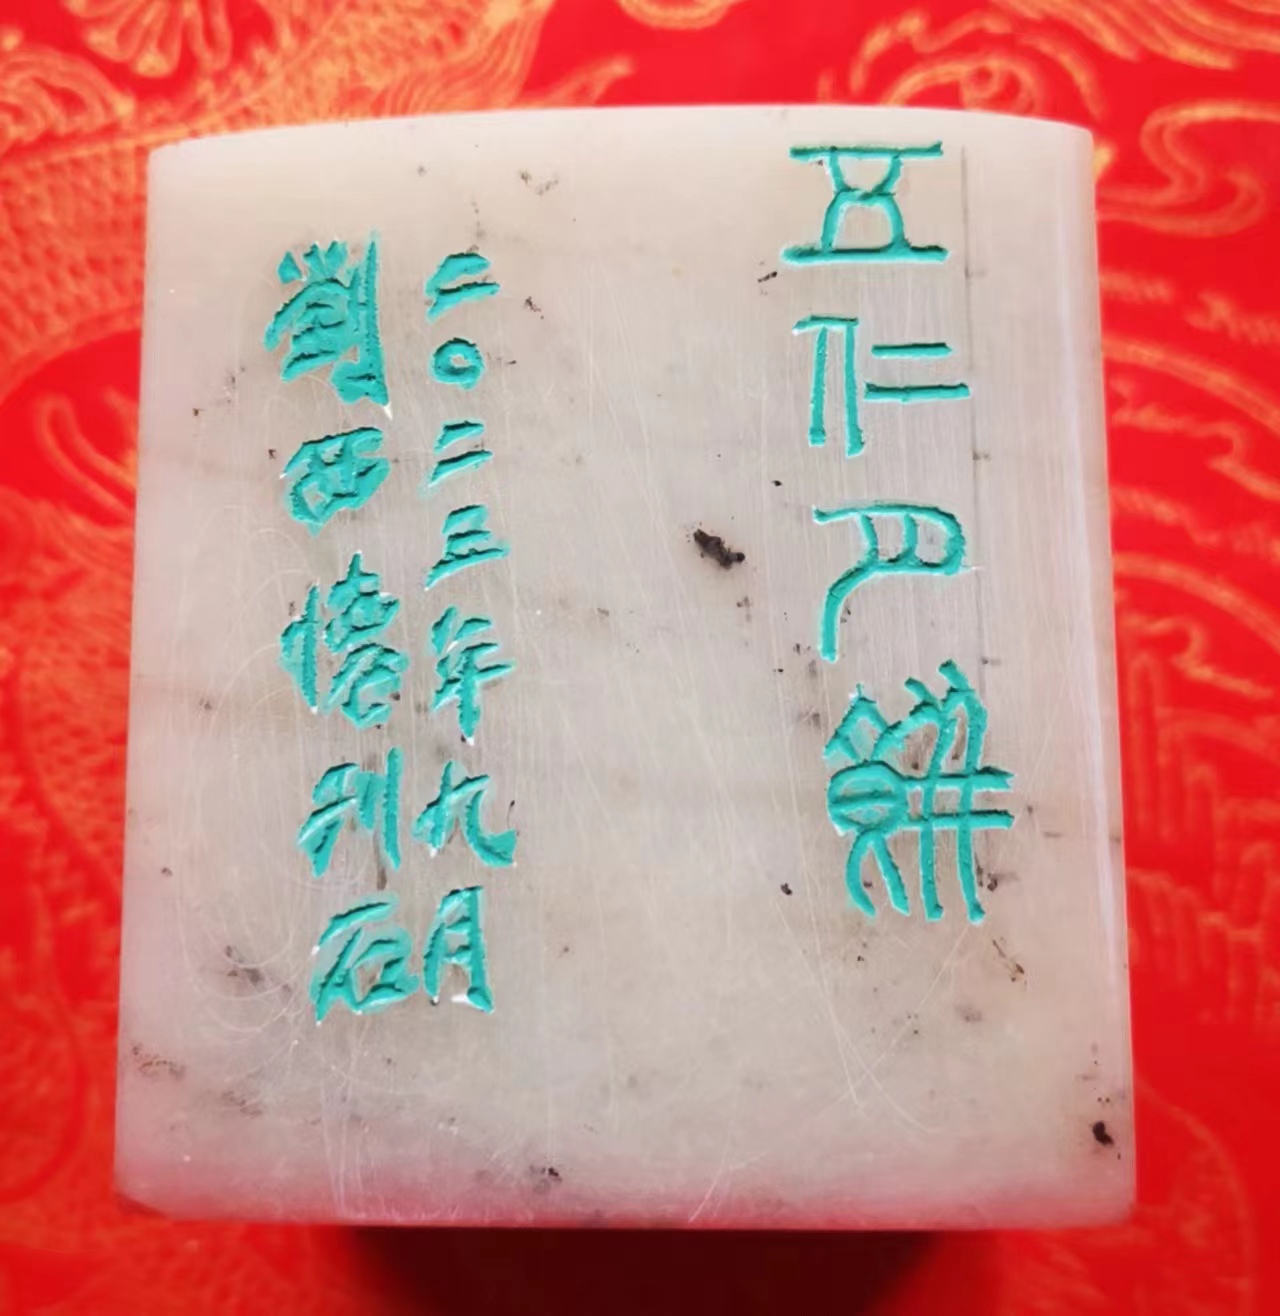 五仁月餅
二〇二三年九月
劉西刊石